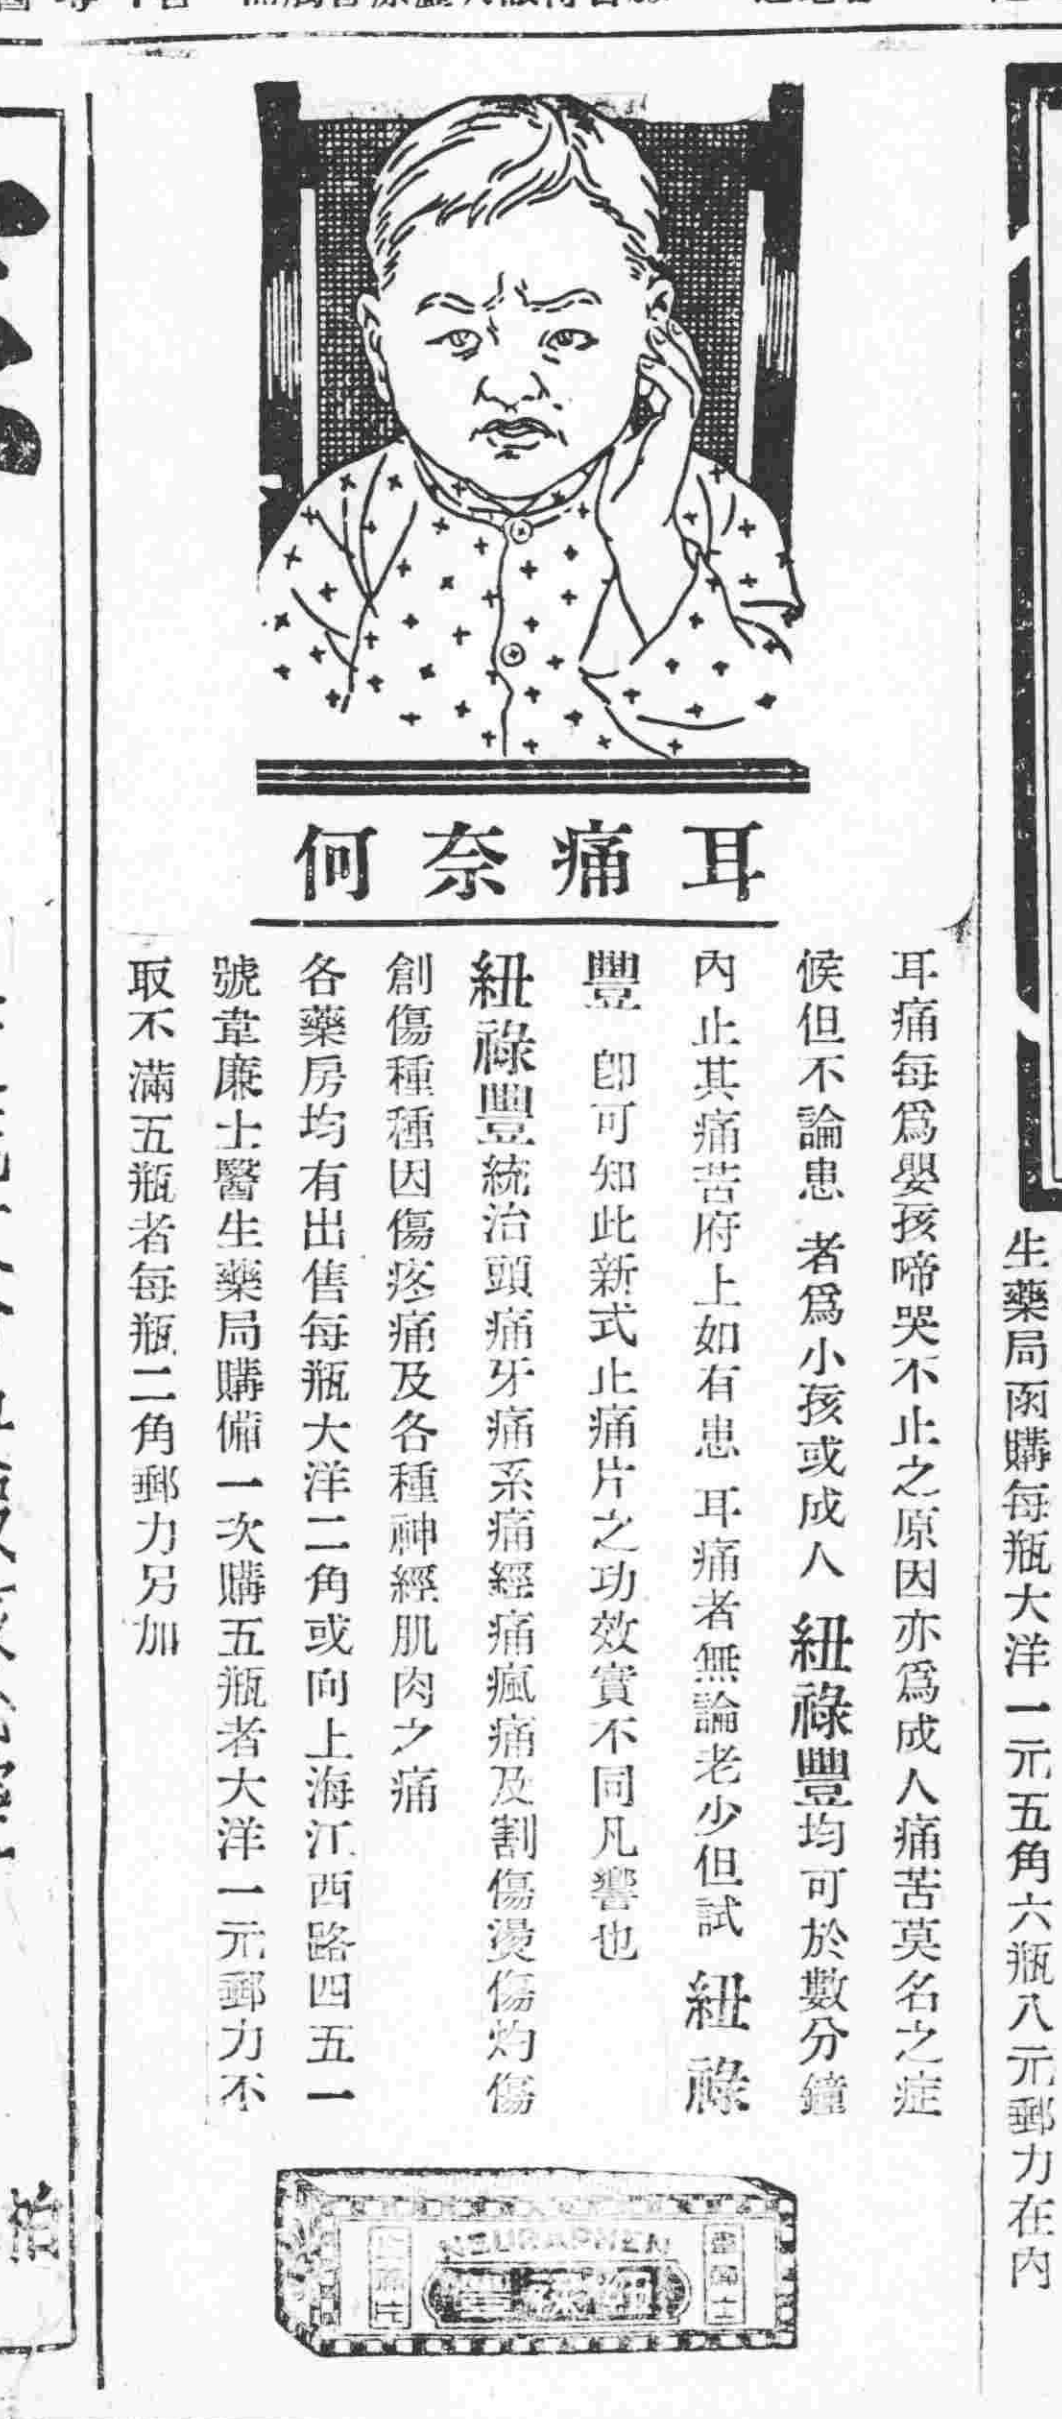 耳痛奈何
耳痛每爲嬰孩啼哭不止之原因亦爲成人痛苦莫名之症
候但不論患者爲小孩或成人紐祿豐均可於數分鐘
內止其痛苦府上如有患耳痛者無論老少但試紐祿
豐卽可知此新式止痛片之功效實不同凡響也
紐祿豐統治頭痛牙痛系痛經痛瘋痛及割傷燙傷灼傷
創傷種種因傷疼痛及各種神經肌肉之痛
各藥房均有出售每瓶大洋二角或向上海江西路四五一
號韋廉士醫生藥局購備一次購五瓶者大洋一元郵力不
取不滿五瓶者每瓶二角郵力另加
韋廉士
NEURAPHEN
紐祿豐
止痛片
生藥局函購每瓶大洋一元五角六瓶八元郵力在內